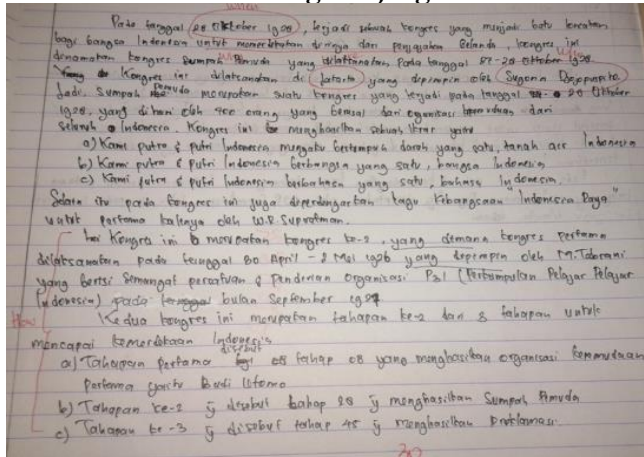 when
Pada tanggal 28 Oktober 1928, terjadi sebuah kongres yang menjadi batu loncatan
bagi bangsa Indonesia untuk memerdekakan dirinya dari penjajahan Belanda, kongres ini
dinamakan kongres Sumpah Pemuda yang dilaksanakan pada tanggal 27-28 Oktober 1928.
Kongres ini dilaksanakan di Jakarta yang dipimpin oleh Sugono Djojopuspito
Jadi, Sumpah Pemuda merupakan suatu kongres yang terjadi pada tanggal 28 Oktober
1928, yang dihari oleh 400 orang yang berasal dari organisasi dari
seluruh Indonesia. Kongres ini menghasilkan sebuah ikrar yaitu
a) Kami putra & putri Indonesia mengaku bertumpah darah yang satu, tanah air Indonesia
b) Kami putra & putri Indonesia berbangsa yang satu, bangsa Indonesia
c) Kami putra & putri Indonesia berbahasa yang satu, bahasa Indonesia.
Selain itu pada kongres ini juga diperdengarkan lagu kebangsaan "Indonesia Raya"
untuk pertama kalinya oleh W.R. Supratman.
Kongres ini merupakan kongres ke-2, yang dimana kongres pertama
dilaksanakan pada tanggal 30 April - 2 Mei 1926 yang dipimpin oleh M. Tabrani
yang berisi semangat persatuan & pendirian organisasi PPPI (Perkumpulan Pelajar Pelajar
Indonesia) pada bulan September
Kedua kongres ini merupakan tahapan ke-2 dari 3 tahapan untuk
mencapai kemerdekaan Indonesia
a) Tahapan pertama disebut tahap 08 yang menghasilkan organisasi kepemudaan
pertama yaitu Budi Utomo
b) Tahapan ke-2 yg disebut tahap 28 yg menghasilkan Sumpah Pemuda
c) Tahapan ke-3 yg disebut tahap 45 yg menghasilkan Proklamasi.
30